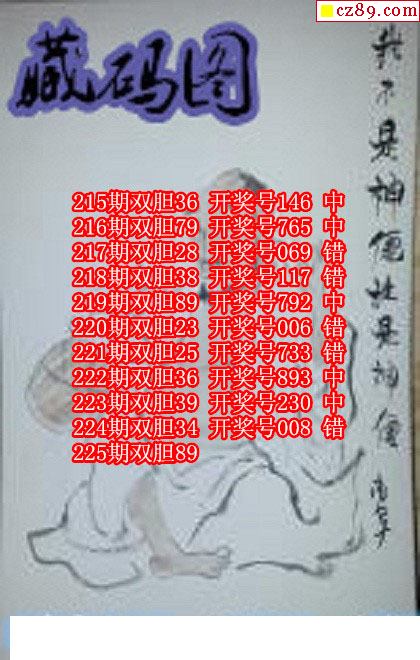 cz89.com
藏码图
215期双胆36 开奖号146 中
216期双胆79 开奖号765 中
217期双胆28 开奖号069 错
218期双胆38 开奖号117 错
219期双胆89 开奖号792 中
220期双胆23 开奖号006 错
221期双胆25 开奖号733 错
222期双胆36 开奖号893 中
223期双胆39 开奖号230 中
224期双胆34 开奖号008 错
225期双胆89
不是神
是神